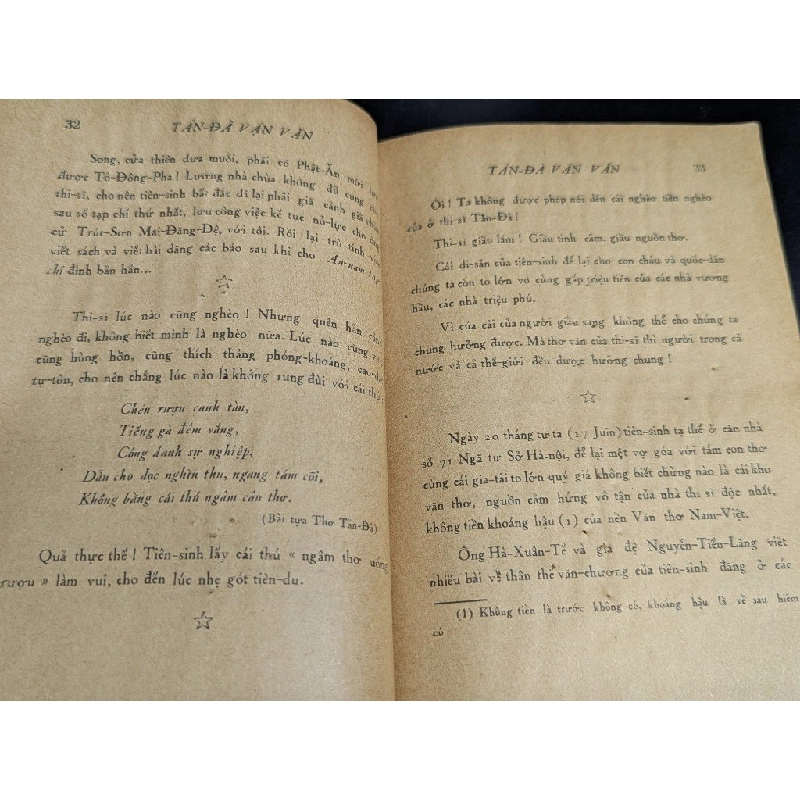 32
TẢN-ĐÀ VẬN VĂN
Song, cửa thiền dưa muối, phải có Phật-Ấn mới
được Tô-Đông-Pha! Lương nhà chùa không đủ cung
thi-sĩ, cho nên tiên-sinh bất đắc dĩ lại phải giã cảnh già
sau số tạp chí thứ nhất, lưu công việc kế tục nỗ-lực cho
cử Trúc-Sơn Mai-Đăng-Đệ, với tôi. Rồi lại trù tính
viết sách và viết bài đăng các báo sau khi cho An-nam
chí đình bản hẳn...
Thi-sĩ lúc nào cũng nghèo! Nhưng quên hẳn
nghèo đi, không biết mình là nghèo nữa. Lúc nào cũng
cũng hùng hồn, cũng thích thảng phóng-khoáng,
tự-tôn, cho nên thẳng lúc nào là không rung đùi với cái
Chén rượu canh tàn,
Tiếng gà đêm vắng,
Công danh sự nghiệp,
Dẫu cho dọc nghìn thu, ngang tám cõi,
Không bằng cái thú ngâm cản thơ.
(Bài tựa Thơ Tản-Đà)
Quả thực thế! Tiên-sinh lấy cái thú « ngâm thơ uống
rượu » làm vui, cho đến lúc nhẹ gót tiên-du.
TẢN-ĐÀ VẬN VĂN
33
Ôi! Ta không được phép nói đến cái nghèo tiền nghèo
của ở thi-sĩ Tản-Đà!
Thi-sĩ giầu lắm! Giầu tình cảm, giầu nguồn thơ.
Cái di-sản của tiên-sinh để lại cho con cháu và quốc-dân
chúng ta còn to lớn vô cùng gấp triệu tiền của các nhà vương
hầu, các nhà triệu phú.
Vì của cải của người giầu sang không thể cho chúng ta
chung hưởng được. Mà thơ văn của thi-sĩ thì người trong cả
nước và cả thế-giới đều được hưởng chung!
Ngày 20 tháng tư ta (17 Juin) tiên-sinh tạ thế ở căn nhà
số 71 Ngã tư Sở Hà-nội, để lại một vợ góa với tám con thơ
cùng cái gia-tài to lớn quý giá không biết chừng nào là cái khu
văn thơ, nguồn cảm hứng vô tận của nhà thi sĩ độc nhất,
không tiền khoáng hậu (1) của nền Văn thơ Nam-Việt.
Ông Hà-Xuân-Tế và gia đệ Nguyễn-Tiến-Lãng viết
nhiều bài về thân thế văn-chương của tiên-sinh đăng ở các
(1) Không tiền là trước không có, khoáng hậu là về sau hiếm
có